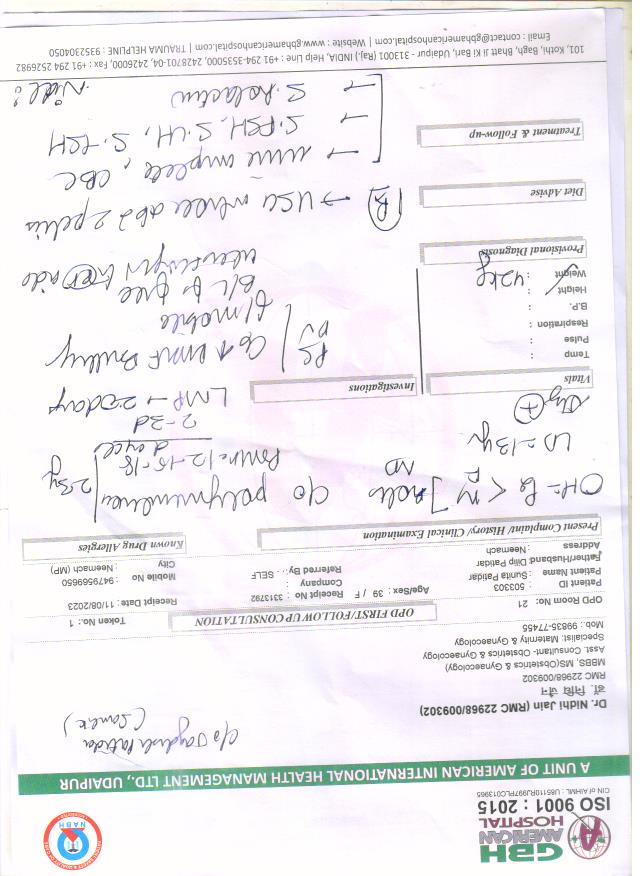 GBH
AMERICAN
HOSPITAL
ISO 9001 : 2015
CIN of AIHML : U85110RJ1997PLC013965
NABH
A UNIT OF AMERICAN INTERNATIONAL HEALTH MANAGEMENT LTD., UDAIPUR
Dr. Nidhi Jain (RMC 22968/009302)
डॉ. निधि जैन
RMC 22968/009302
MBBS, MS(Obstetrics & Gynaecology)
Asst. Consultant- Obstetrics & Gynaecology
Specialist: Maternity & Gynaecology
Mob : 99835-77455
OPD FIRST/FOLLOW UP CONSULTATION
Token No.: 1
OPD Room No: 21
Receipt Date : 11/08/2023
Patient ID : 5003303
Age/Sex : 39 / F Receipt No : 3313792
Patient Name : Sunita Patidar
Company :
Mobile No : 9479569650
Father/Husband: Dilip Patidar
Referred By.. : SELF
City : Neemach (MP)
Address : Neemach
Present Complaint/ History/ Clinical Examination
Known Drug Allergies
c/o polymenorrhea
2-3y
LD = 13 yr
12-15-18
days
2-3d
LMP → 20 days
Vitals
Investigations
Temp :
Pulse :
Respiration :
B.P. :
Height :
Weight : 42 kg
PS
PV
mobile
B/L free
Provisional Diagnosis
Diet Advise
→ USG whole abd & pelvis
Treatment & Follow-up
→ urine complete, CBC
→ S.FSH, S.LH, S.TSH
→ S.Prolactin
101, Kothi, Bagh, Bhatt Ji Ki Bari, Udaipur - 313001 (Raj.) INDIA, Help Line : +91 294-3535000, 2428701-04, 2426000, Fax : +91 294 2526982
Email : contact@gbhamericanhospital.com | Website : www.gbhamericanhospital.com | TRAUMA HELPLINE : 9352304050